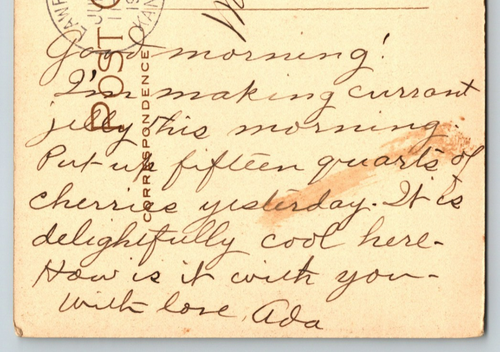 Good morning!
I'm making currant
jelly this morning.
Put up fifteen quarts of
cherries yesterday. It is
delightfully cool here-
How is it with you-
With love, Ada
POST
CORRESPONDENCE
LAWR
KAN